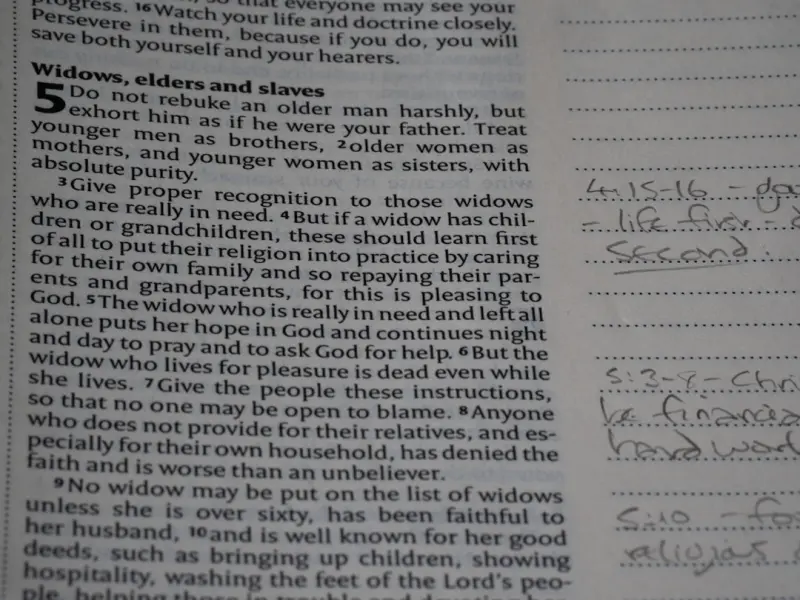 progress. 16 Watch your life and doctrine closely.
Persevere in them, because if you do, you will
save both yourself and your hearers.
Widows, elders and slaves
5 Do not rebuke an older man harshly, but
exhort him as if he were your father. Treat
younger men as brothers, 2 older women as
mothers, and younger women as sisters, with
absolute purity.
3 Give proper recognition to those widows
who are really in need. 4 But if a widow has chil-
dren or grandchildren, these should learn first
of all to put their religion into practice by caring
for their own family and so repaying their par-
ents and grandparents, for this is pleasing to
God. 5 The widow who is really in need and left all
alone puts her hope in God and continues night
and day to pray and to ask God for help. 6 But the
widow who lives for pleasure is dead even while
she lives. 7 Give the people these instructions,
so that no one may be open to blame. 8 Anyone
who does not provide for their relatives, and es-
pecially for their own household, has denied the
faith and is worse than an unbeliever.
9 No widow may be put on the list of widows
unless she is over sixty, has been faithful to
her husband, 10 and is well known for her good
deeds, such as bringing up children, showing
hospitality, washing the feet of the Lord's peo-
4:15-16 -
- life first -
second.
5:3-8 - Chri
be financia
hard work
5:10 - fo